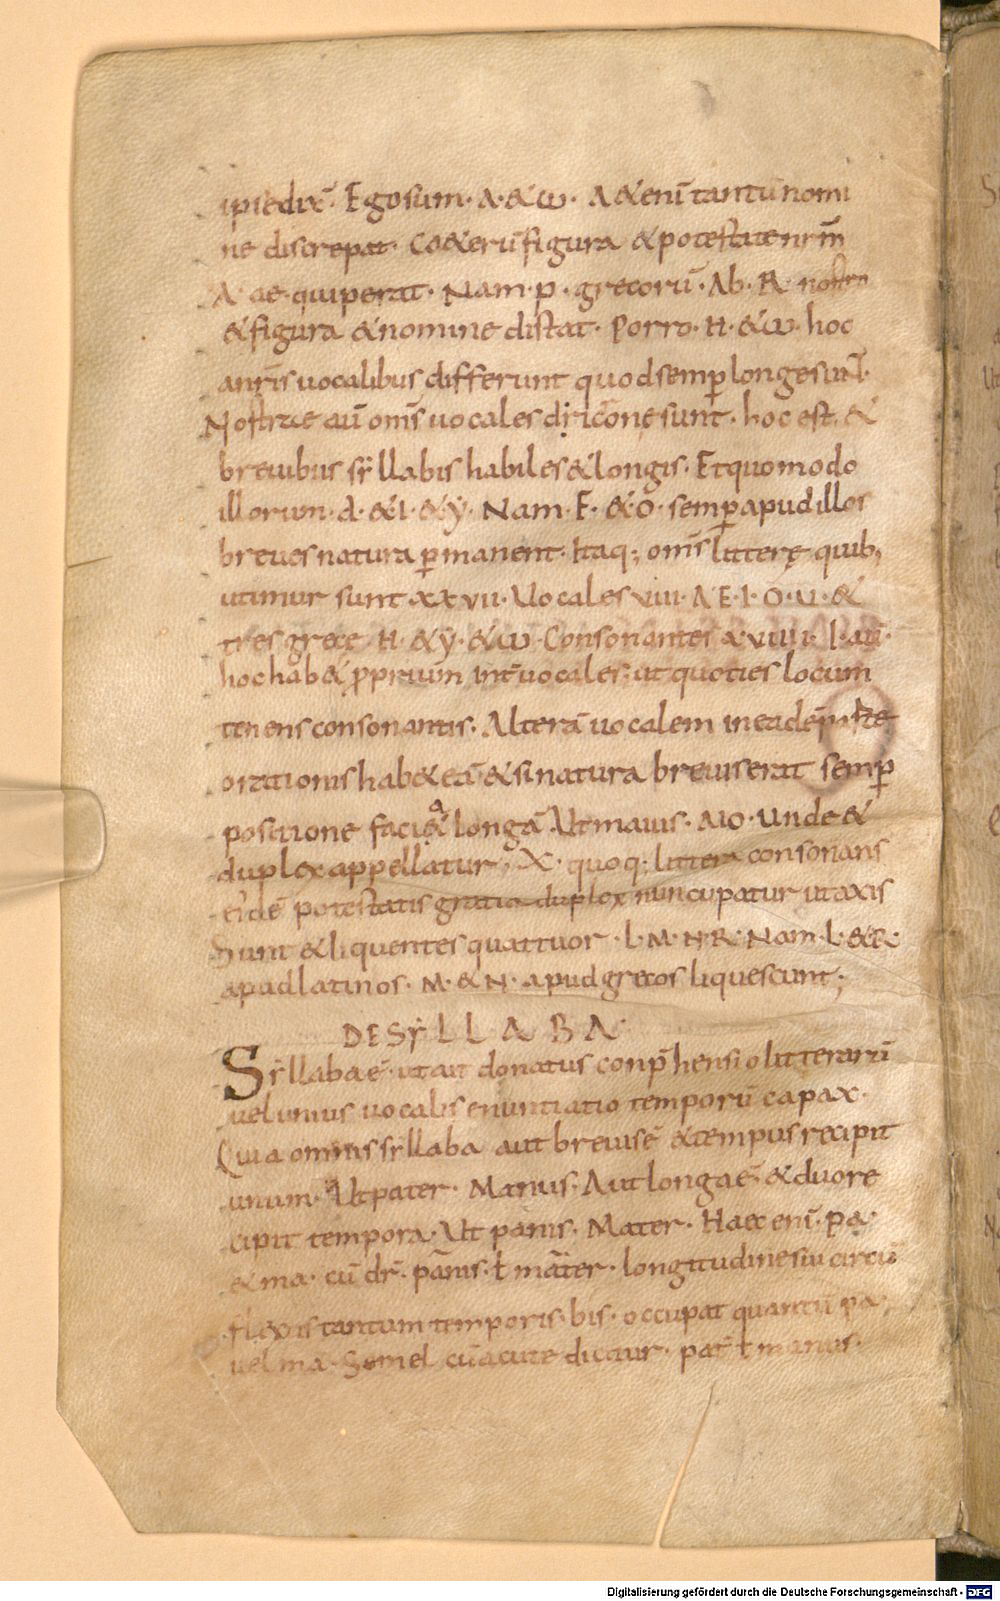 ipse dix̄· Ego sum· A· & ω· A & enī tantū nomi
ne discrepat· Co&erū figura & potestate nr̄m
A· ae·quiperat· Nam· p· grecorū· Ab· R· nostra
& figura & nomine distat· Porro· H· & ω· hoc
a nr̄is uocalibus differunt quod semp̄ longe sunt·
Nostrae aū om̄s uocales dicrone sunt· hoc est· &
breuibus syllabis habiles & longis· Et quomodo
illorum· a· & I· & ẏ· Nam· E· & O· semp̄ apud illos
breues natura p̄manent· Itaq; om̄s litterę quib;
utimur sunt xxvii· Uocales viii· A· E· I· O· U· &
tres grece· H· & ẏ· & ω· Consonantes xviiii· I· aū·
hoc hab& proprium int̄ uocales· ut quoties locum
tenens consonantis· Alterā uocalem in eadē parte
orationis hab& eā & si natura breuis erat semp̄
positione faci&a longā· Ut mauis· Aio· Unde &
duplex appellatur· X· quoq; littera consonans
eidē potestatis gratia duplex nuncupatur ut axis
Sunt & liquentes quattuor· L· M· N· R· Nam· L· & R·
apud latinos· M· & N· apud grecos liquescunt;
DE SYLLABA·
Syllaba ē· ut ait donatus conp̄hensio litterarū
uel unius uocalis enuntiatio temporū capax·
Quia omnis syllaba aut breuis ē & tempus recipit
unum· Ut pater· Manus· Aut longa ē· & duo re
cipit tempora· Ut panis· Mater· Haec enī· pa·
& ma· cū dr̄· panis· ł mater· longitudine siu circū
flexis tantum temporis· bis· occupat quantū pa·
uel ma· Semel cū acute dicitur· pat̄ ł manus·